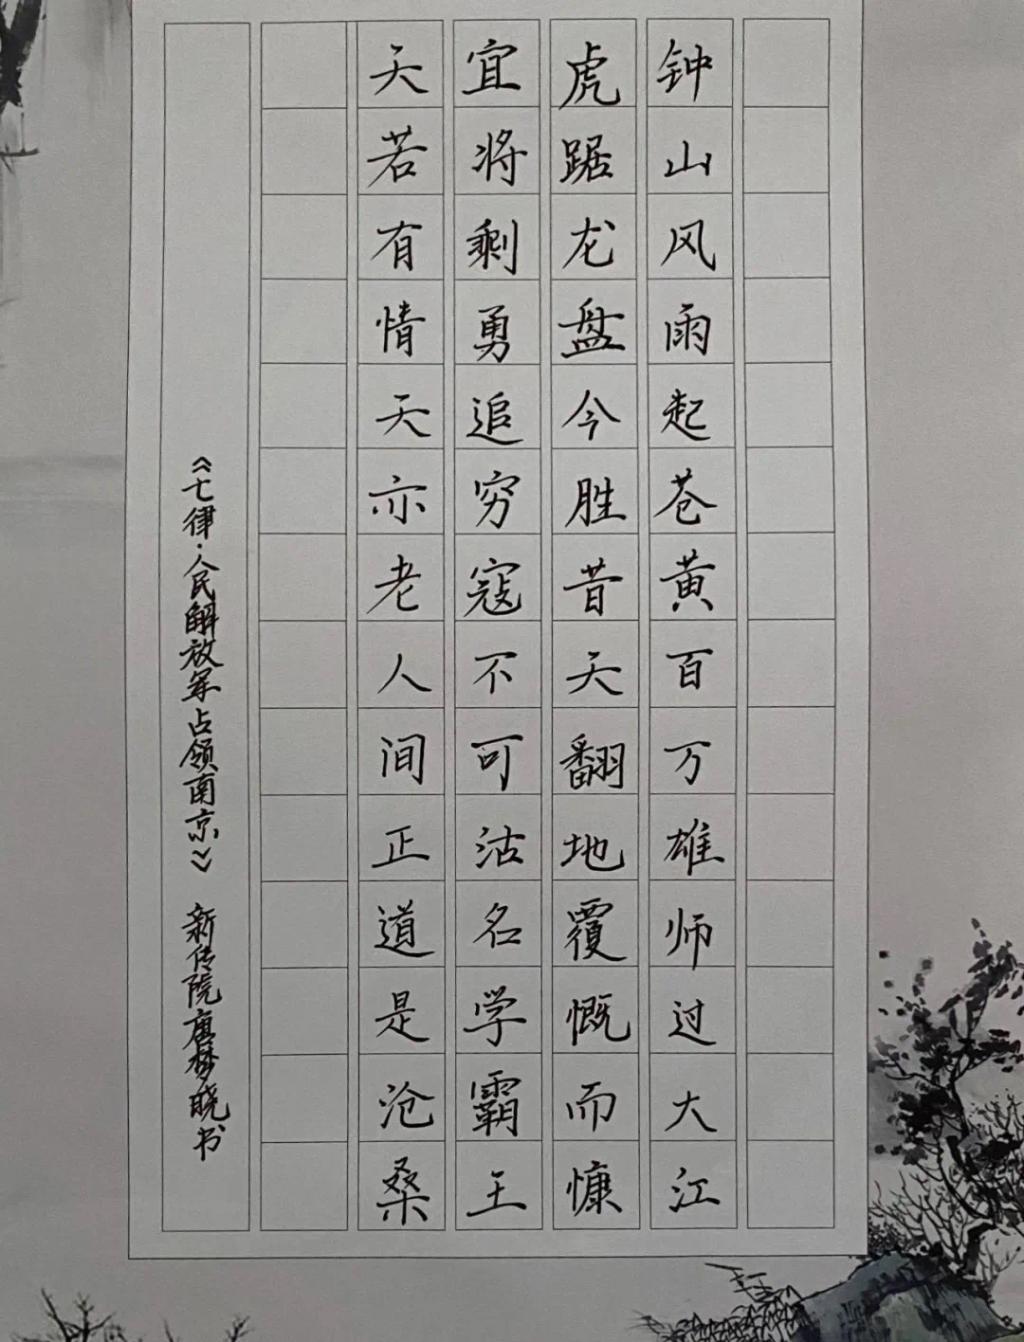 钟山风雨起苍黄百万雄师过大江
虎踞龙盘今胜昔天翻地覆慨而慷
宜将剩勇追穷寇不可沽名学霸王
天若有情天亦老人间正道是沧桑
《七律·人民解放军占领南京》 新传院唐梦晓书